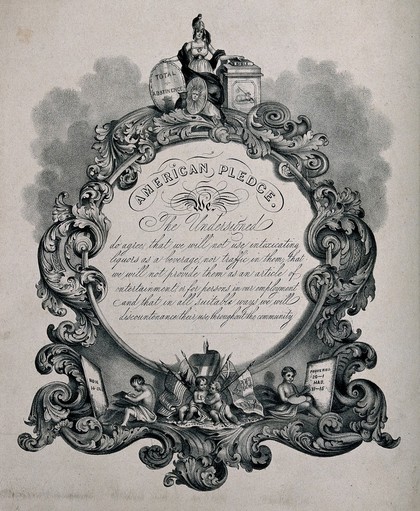 TOTAL
ABSTINENCE
AMERICAN PLEDGE.
We
The Undersigned
do agree, that we will not use intoxicating
liquors as a beverage, nor traffic in them; that
we will not provide them as an article of
entertainment or for persons in our employment
and that in all suitable ways we will
discountenance their use throughout the community
PROVERBS
20-1
HAB.